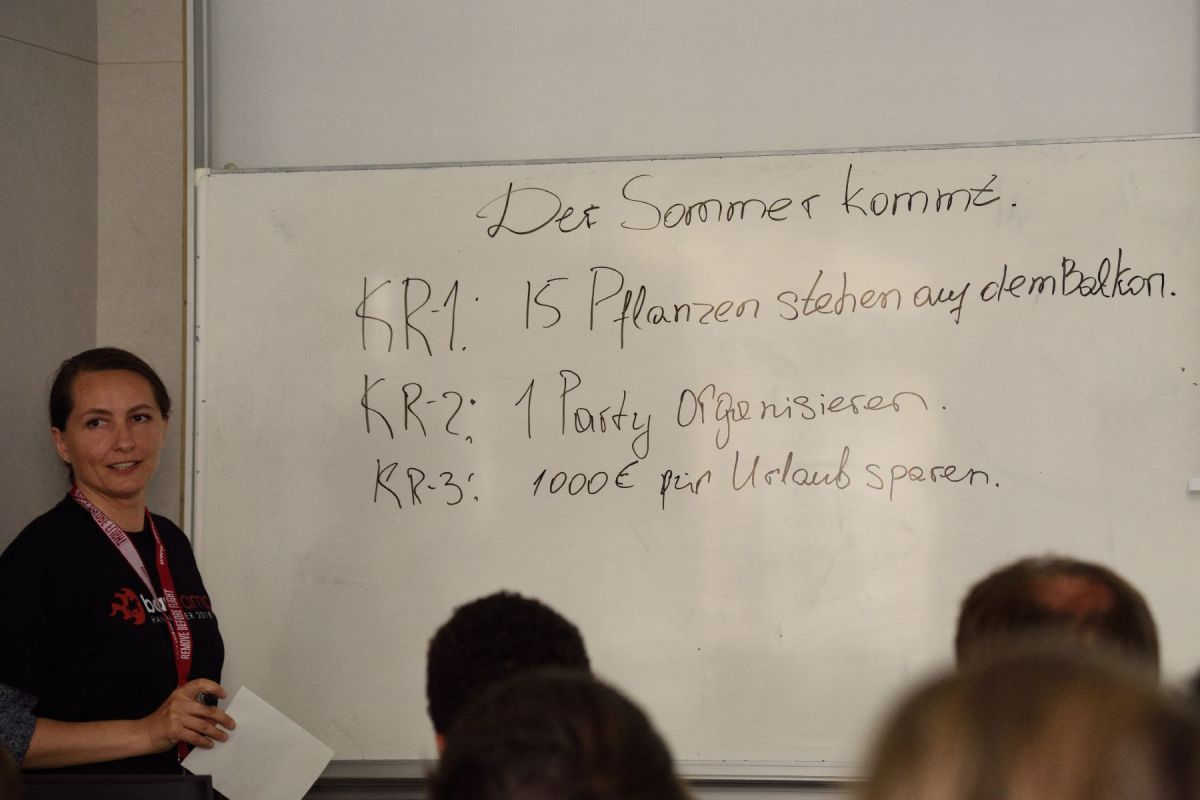 Der Sommer kommt.
KR-1: 15 Pflanzen stehen auf dem Balkon.
KR-2: 1 Party organisieren.
KR-3: 1000€ für Urlaub sparen.
REMOVE BEFORE FLIGHT